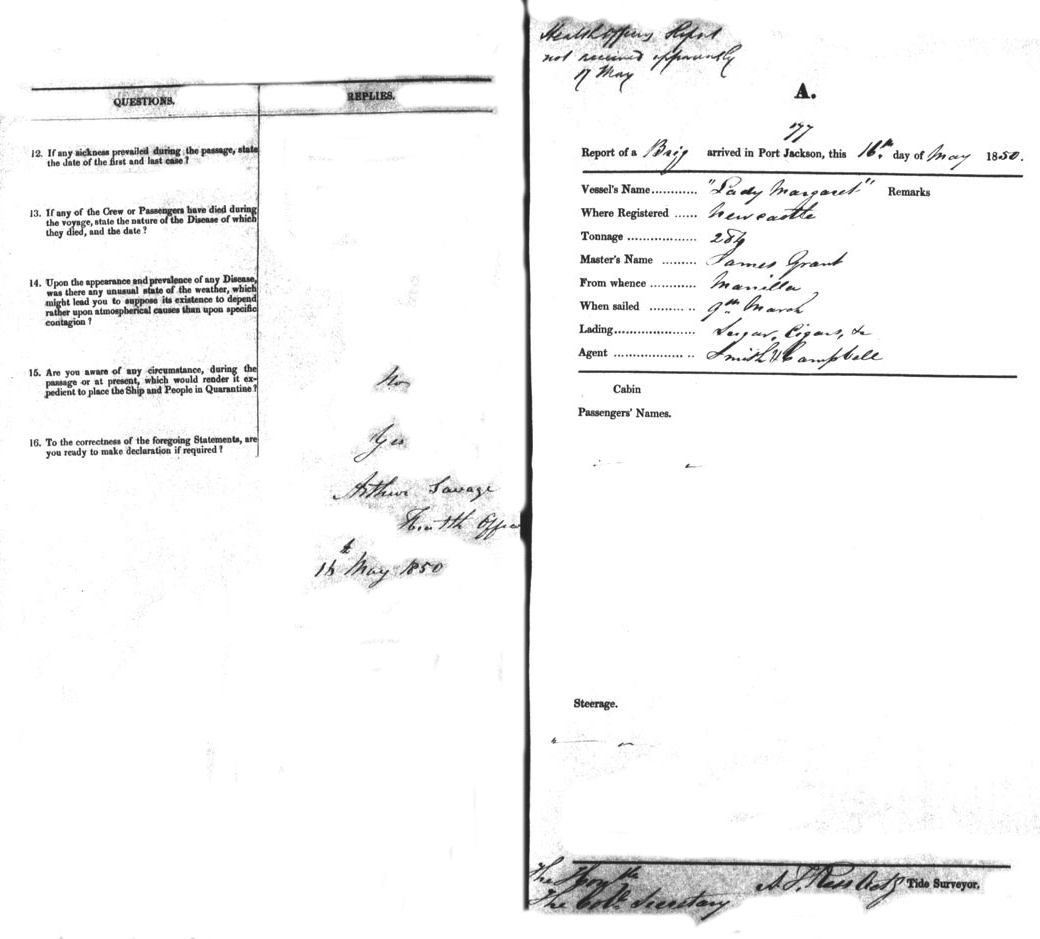 QUESTIONS.
REPLIES.
12. If any sickness prevailed during the passage, state
the date of the first and last case?
13. If any of the Crew or Passengers have died during
the voyage, state the nature of the Disease of which
they died, and the date?
14. Upon the appearance and prevalence of any Disease,
was there any unusual state of the weather, which
might lead you to suppose its existence to depend
rather upon atmospherical causes than upon specific
contagion?
15. Are you aware of any circumstance, during the
passage or at present, which would render it ex-
pedient to place the Ship and People in Quarantine?
No
16. To the correctness of the foregoing Statements, are
you ready to make declaration if required?
Yes
Arthur Savage
Health Officer
May 1850
Health Officers Report
not received apparently
17 May
A.
77
Report of a Brig arrived in Port Jackson, this 16th. day of May 1850.
Vessel's Name............ "Lady Margaret" Remarks
Where Registered ...... Newcastle
Tonnage .................. 284
Master's Name ......... James Grant
From whence ............ Manilla
When sailed ............ 9th March
Lading..................... Sugar, Cigars, &c
Agent ..................... Smith & Campbell
Cabin
Passengers' Names.
Steerage.
The Honble
The Coll. Secretary
A. T. Ross Actg Tide Surveyor.